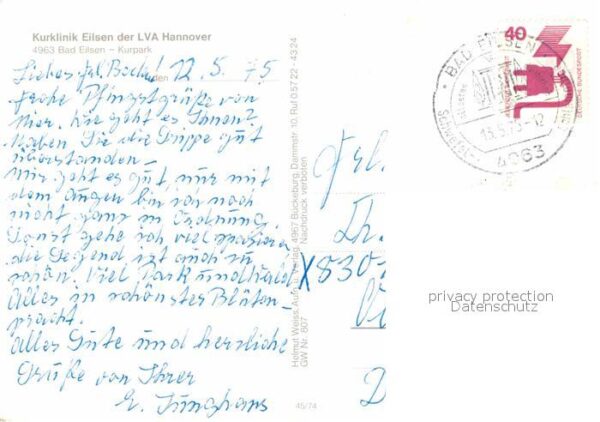 Kurklinik Eilsen der LVA Hannover
4963 Bad Eilsen – Kurpark
Liebes Frl. Bockel den 12.5.75
Frohe Pfingstgrüße von
hier. Wie geht es Ihnen?
Haben Sie die Grippe gut
überstanden –
Mir geht es gut, nur mit
dem Augen bin ich noch
nicht ganz in Ordnung.
Sonst gehe ich viel spazieren
die Gegend ist auch zu
schön. Viel Park und Wald
Alles in schönstes Blüten-
pracht.
Alles Gute und herzliche
Grüße von Ihrer
E. Junghans
Helmut Weiss, Aufn. u. Verlag, 4967 Bückeburg, Dammstr. 10, Ruf 05722 - 4324
Nachdruck verboten
GW Nr. 807
45/74
Frl.
Th.
X 830
D
40
DEUTSCHE BUNDESPOST
BAD EILSEN
4963
privacy protection
Datenschutz